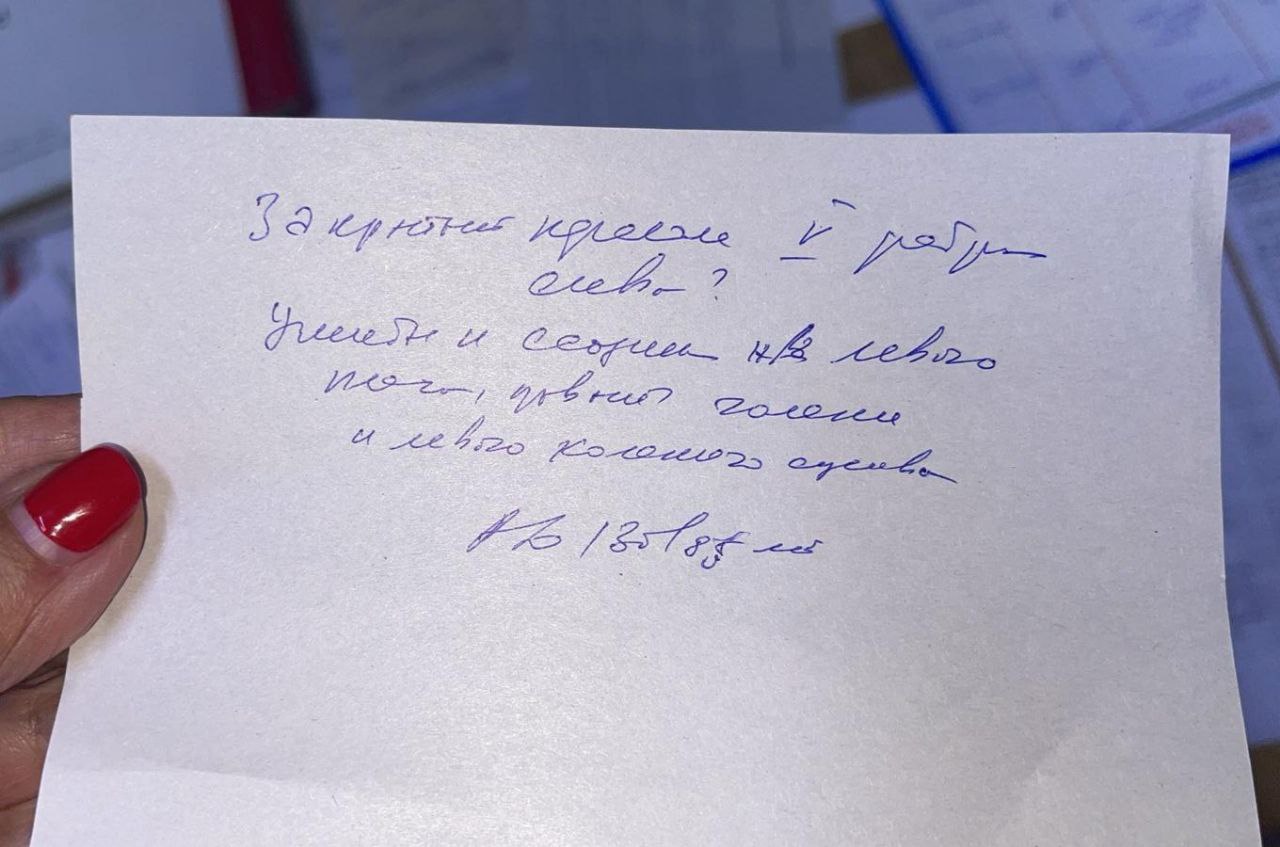 Закрытый перелом V ребра
слева?
Ушибы и ссадины н/3 левого
плеча, правой голени
и левого коленного сустава
АД 130/85 мм